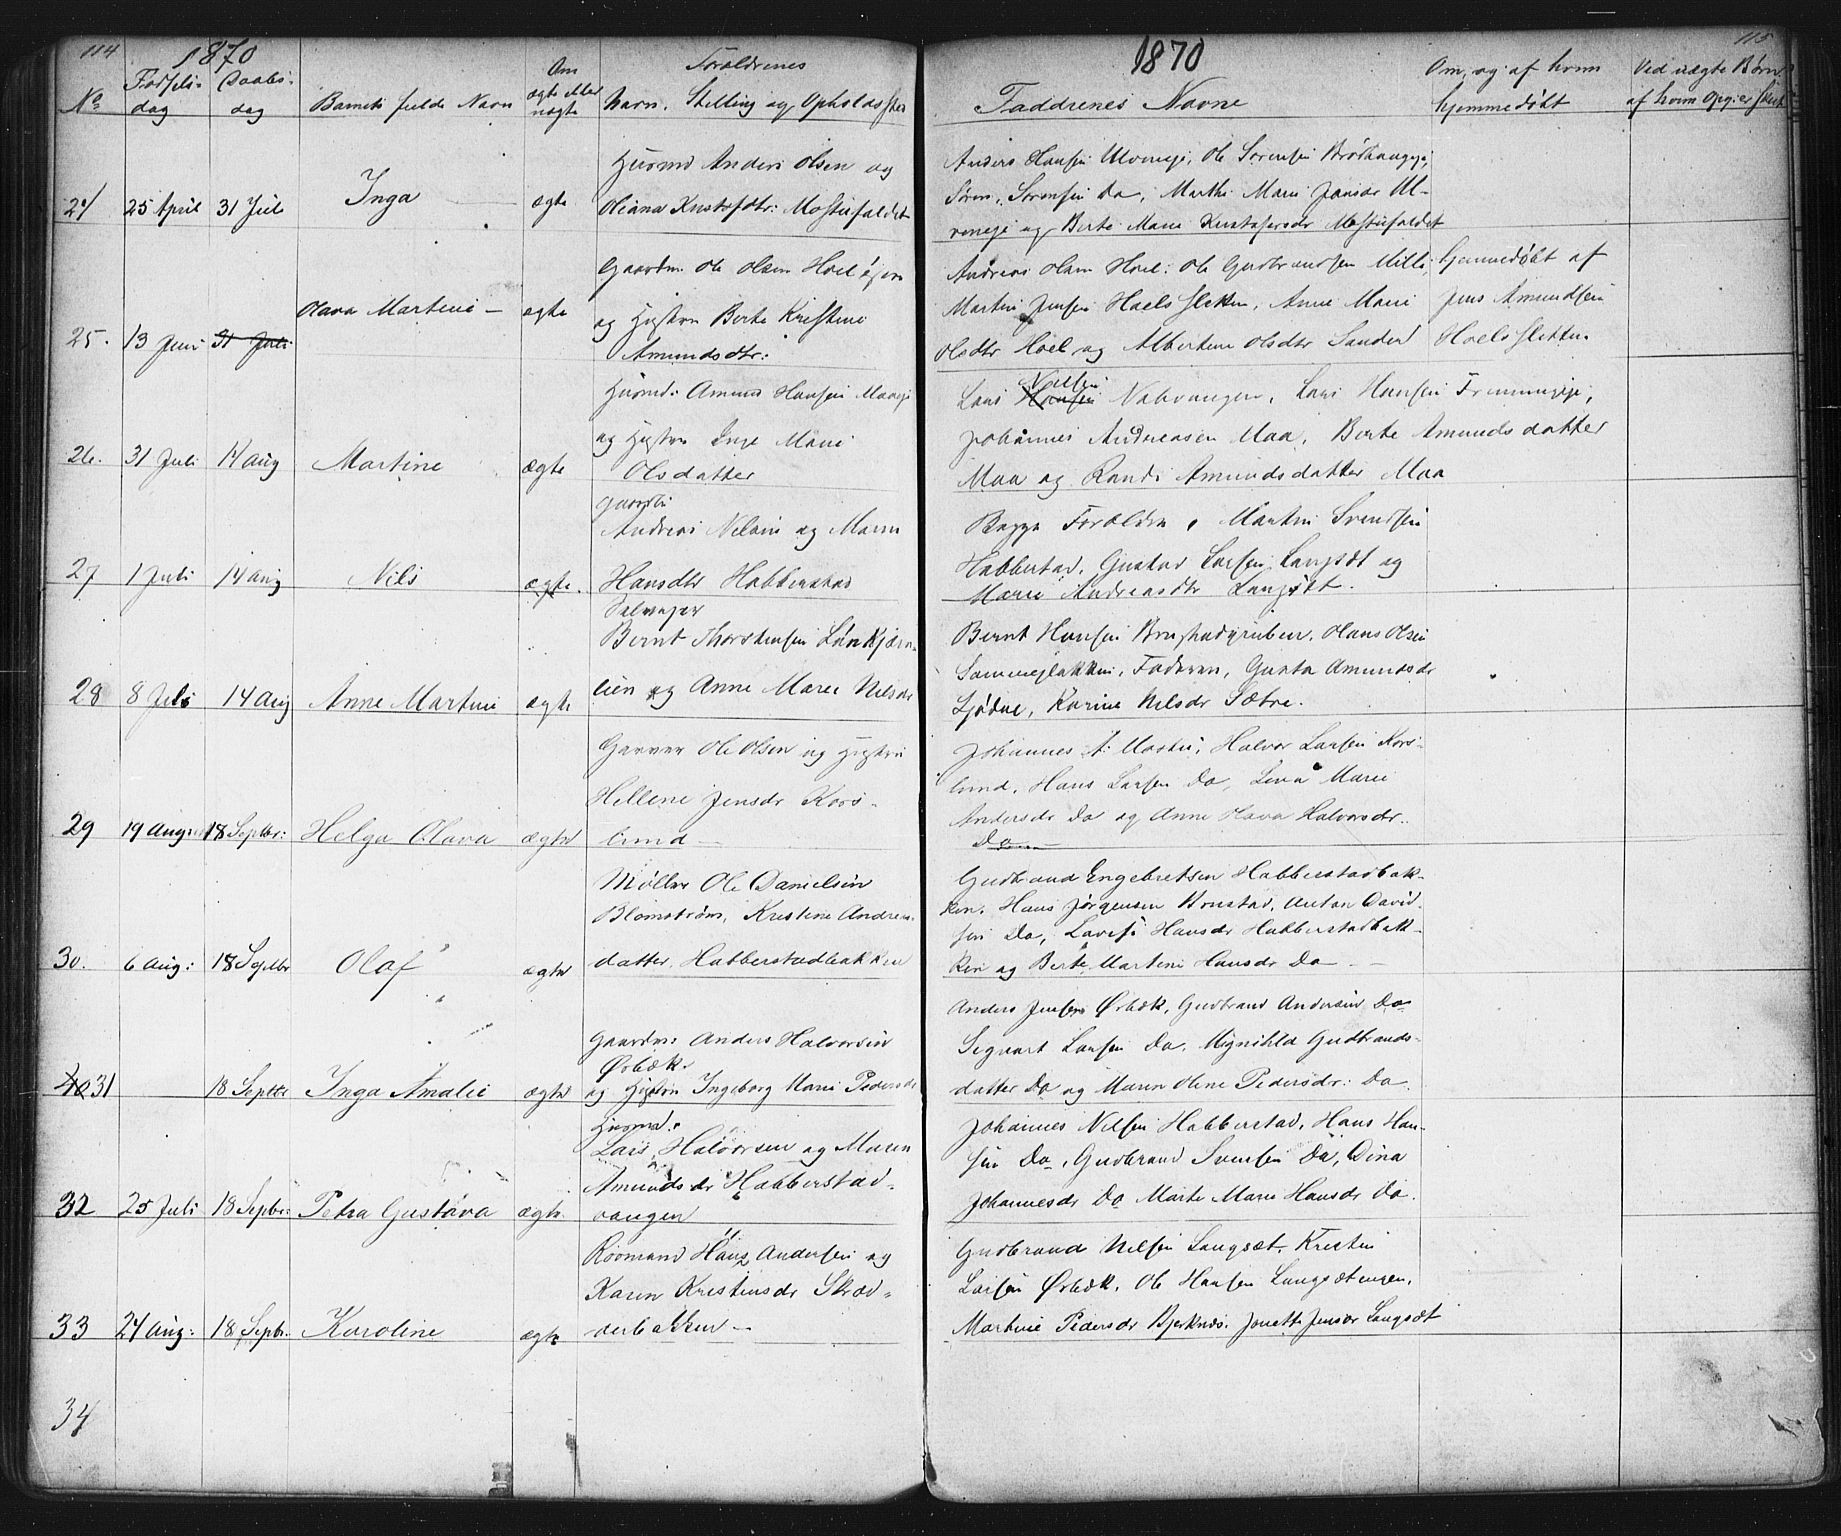 114
1870
No
Fødsels-
dag
Daabs-
dag
Barnets fulde Navn
Om
ægte eller
uægte
Forældrenes
Navn, Stilling og Opholdssted
24 25 April 31 Juli Inga ægte
Husmd Anders Olsen og
Oliana Kustafdtr:
25. 13 Juni 31 Juli Olava Martine — ægte
Gaardm: Ole Olsen Hoel
og Hustru Berte Kristine
Amundsdtr:
26. 31 Juli 14 Aug Martine ægte
Husmd: Amund Hansen
og Hustru Inge Marie
Olsdatter
27 1 Juli 14 Aug Nils ægte.
Andreas Nilsen og Maren
Hansdtr Habberstad
28 8 Juli 14 Aug Anne Martine ægte
Selvejer
Bernt Thorstensen Lönkjærn-
lien og Anne Marie Nilsdr
29 19 August 18 Septbr: Helga Olava ægte
Garver Ole Olsen og Hustru
Hellene Jensdr Kors-
lund —
30. 6 Aug: 18 Septbr Olaf ægte
Møller Ole Danielsen
Blomstrøm, Kristine Andreas-
datter Habberstadbakken
40 31 18 Septbr Inga Amalie ægte
Gaardm: Anders Halvorsen
Ørbæk
og Hustru Ingeborg Marie Pedersdr
32 25 Juli 18 Septbr: Petra Gustava ægte
Husmd:
Lars Halvorsen og Maren
Amundsdr Habberstad-
vangen
33 24 Aug: 18 Septbr. Karoline ægte
Hans Andersen og
Karen Kristensdr Skræd-
derbakken —
34
115
1870
Faddrenes Navne
Om, og af hvem
hjemmedøbt
Ved uægte Børn
af hvem Opgivet
Anders Hansen Ole Sorensen
Søren Sorensen Do, Marthe Marie Jansdr
og Berte Marie
Andreas Olsen Hoel: Ole Gudbrandsen
Martin Jensen Hoelssletten, Anne Marie
Olsdtr Hoel og Albertine Olsdtr Sander
Hjemmedøbt af
Jens Amundsen
Hoelssletten
Nilsen
Lars Hansen Lars Hansen
Johannes Andreasen Maa, Berte Amundsdatter
Maa og Randi Amundsdatter Maa
Begge Forældre, Martin Svendsen
Habberstad, Gustav Larsen Langsæt og
Marie Andreasdtr Langsæt.
Bernt Hansen Brustadgruben, Hans Olsen
Faderen, Gusta Amundsdr
Ljødne, Karine Nilsdr Sætre.
Johannes A: Halvor Larsen Kors-
lund, Hans Larsen Do, Lina Marie
Andersdr Do og Anne Olava Halvorsdr.
Do —
Gudbrand Engebretsen Habberstadbak-
ken. Hans Jørgensen Brustad, Anton David-
sen Do, Lovise Hansdr Habberstadbak-
ken og Berte Martine Hansdr Do —
Anders Jensen Ørbæk, Gudbrand Andersen Do
Sigvart Larsen Do, Mignilda Gudbrands-
datter Do og Maren Oline Pedersdr: Do
Johannes Nilsen Habberstad, Hans Han-
sen Do, Gudbrand Svensen Do, Dina
Johannesdr Do Marte Marie Hansdr Do.
Gudbrand Nilsen Langsæt, Kristen
Larsen Ørbæk, Ole Hansen Langsætengen,
Martine Pedersdr Bjerknæs, Jonette Jensdr Langsæt